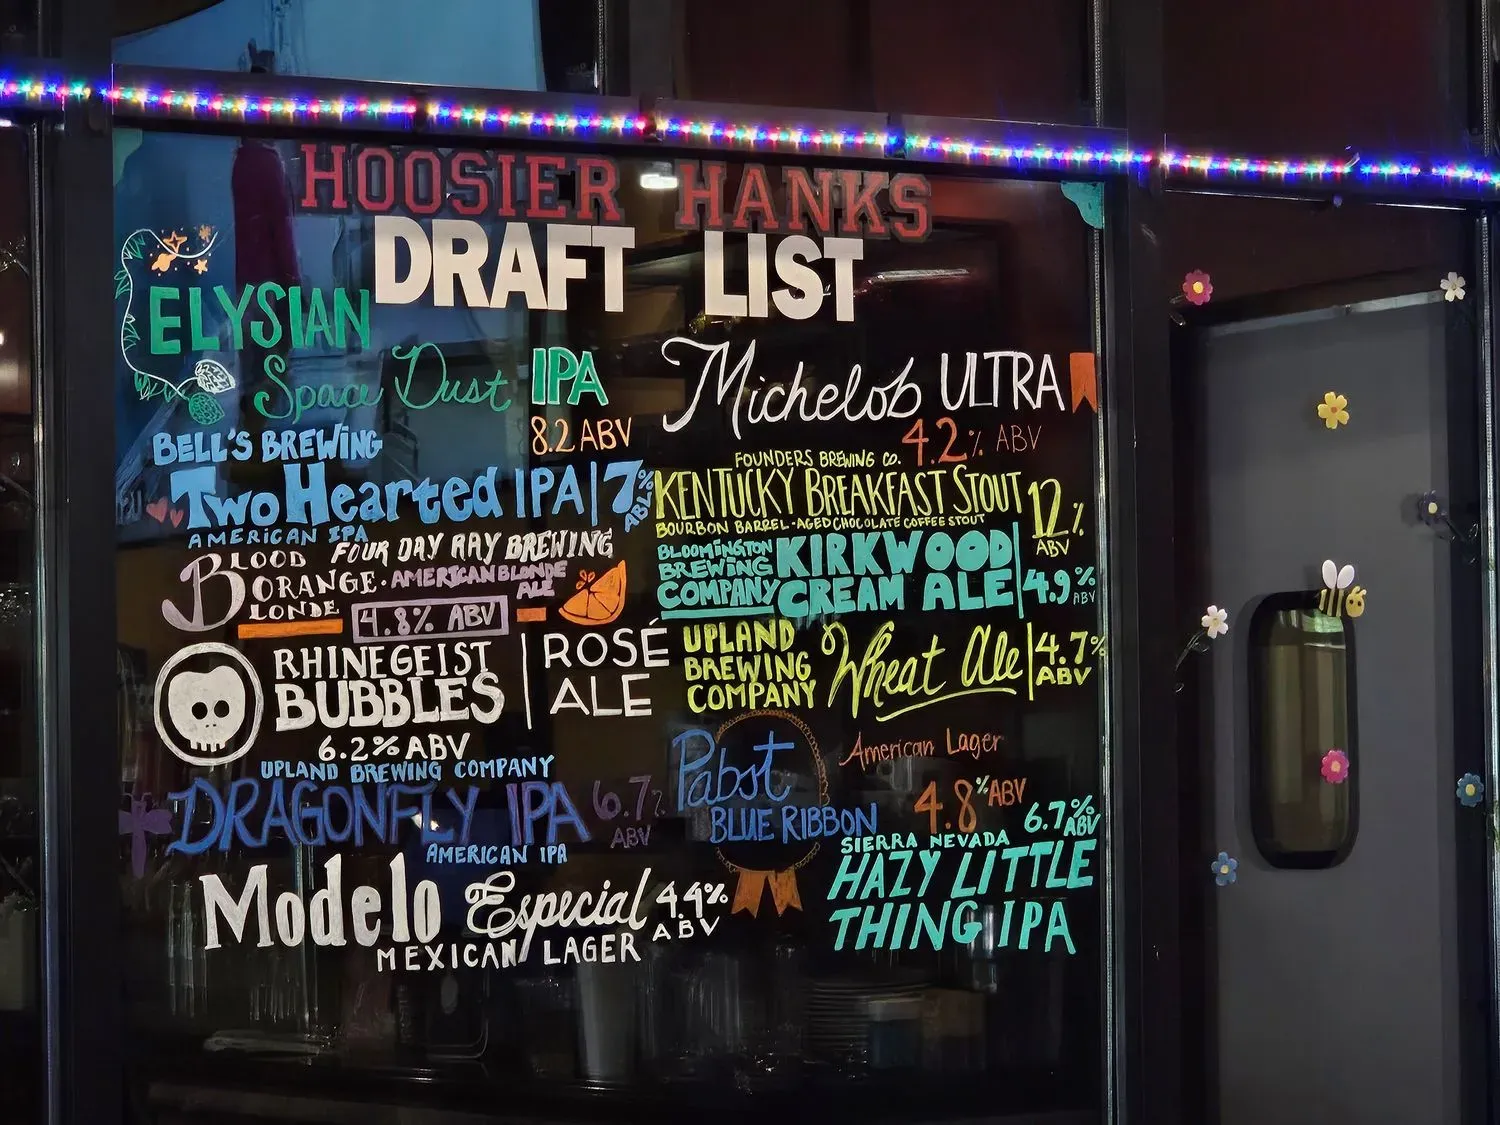 HOOSIER HANKS
DRAFT LIST
ELYSIAN
Space Dust IPA
8.2 ABV
BELL'S BREWING
Two Hearted IPA 7%
AMERICAN IPA
FOUR DAY RAY BREWING
BLOOD
ORANGE · AMERICAN BLONDE
ALE
BLONDE
4.8% ABV
RHINEGEIST
BUBBLES
ROSÉ
ALE
6.2% ABV
UPLAND BREWING COMPANY
DRAGONFLY IPA 6.7%
ABV
AMERICAN IPA
Modelo Especial 4.4%
ABV
MEXICAN LAGER
Michelob ULTRA
4.2% ABV
FOUNDERS BREWING CO.
KENTUCKY BREAKFAST STOUT 12%
ABV
BOURBON BARREL-AGED CHOCOLATE COFFEE STOUT
BLOOMINGTON
BREWING
COMPANY
KIRKWOOD
CREAM ALE
4.9%
ABV
UPLAND
BREWING
COMPANY
Wheat Ale
4.7%
ABV
Pabst
BLUE RIBBON
American Lager
4.8% ABV
6.7%
ABV
SIERRA NEVADA
HAZY LITTLE
THING IPA